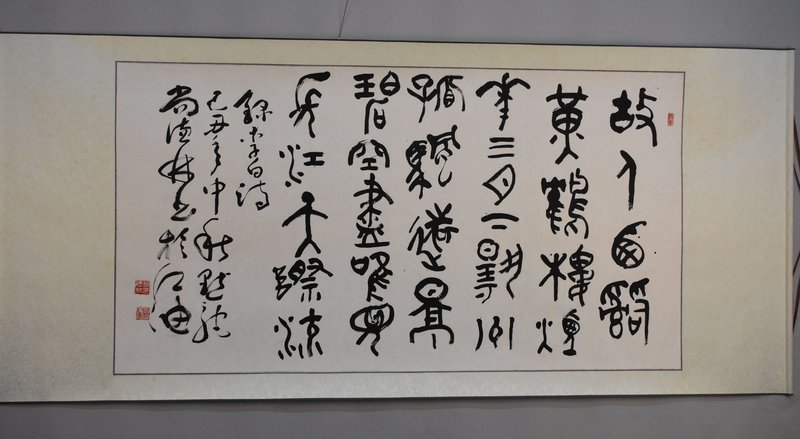 故人西辭
黄鶴樓煙
華三月下揚州
孤帆遠景
碧空盡唯見
長江天際流
錄李白詩
己丑年中秋
尚德林书於江油